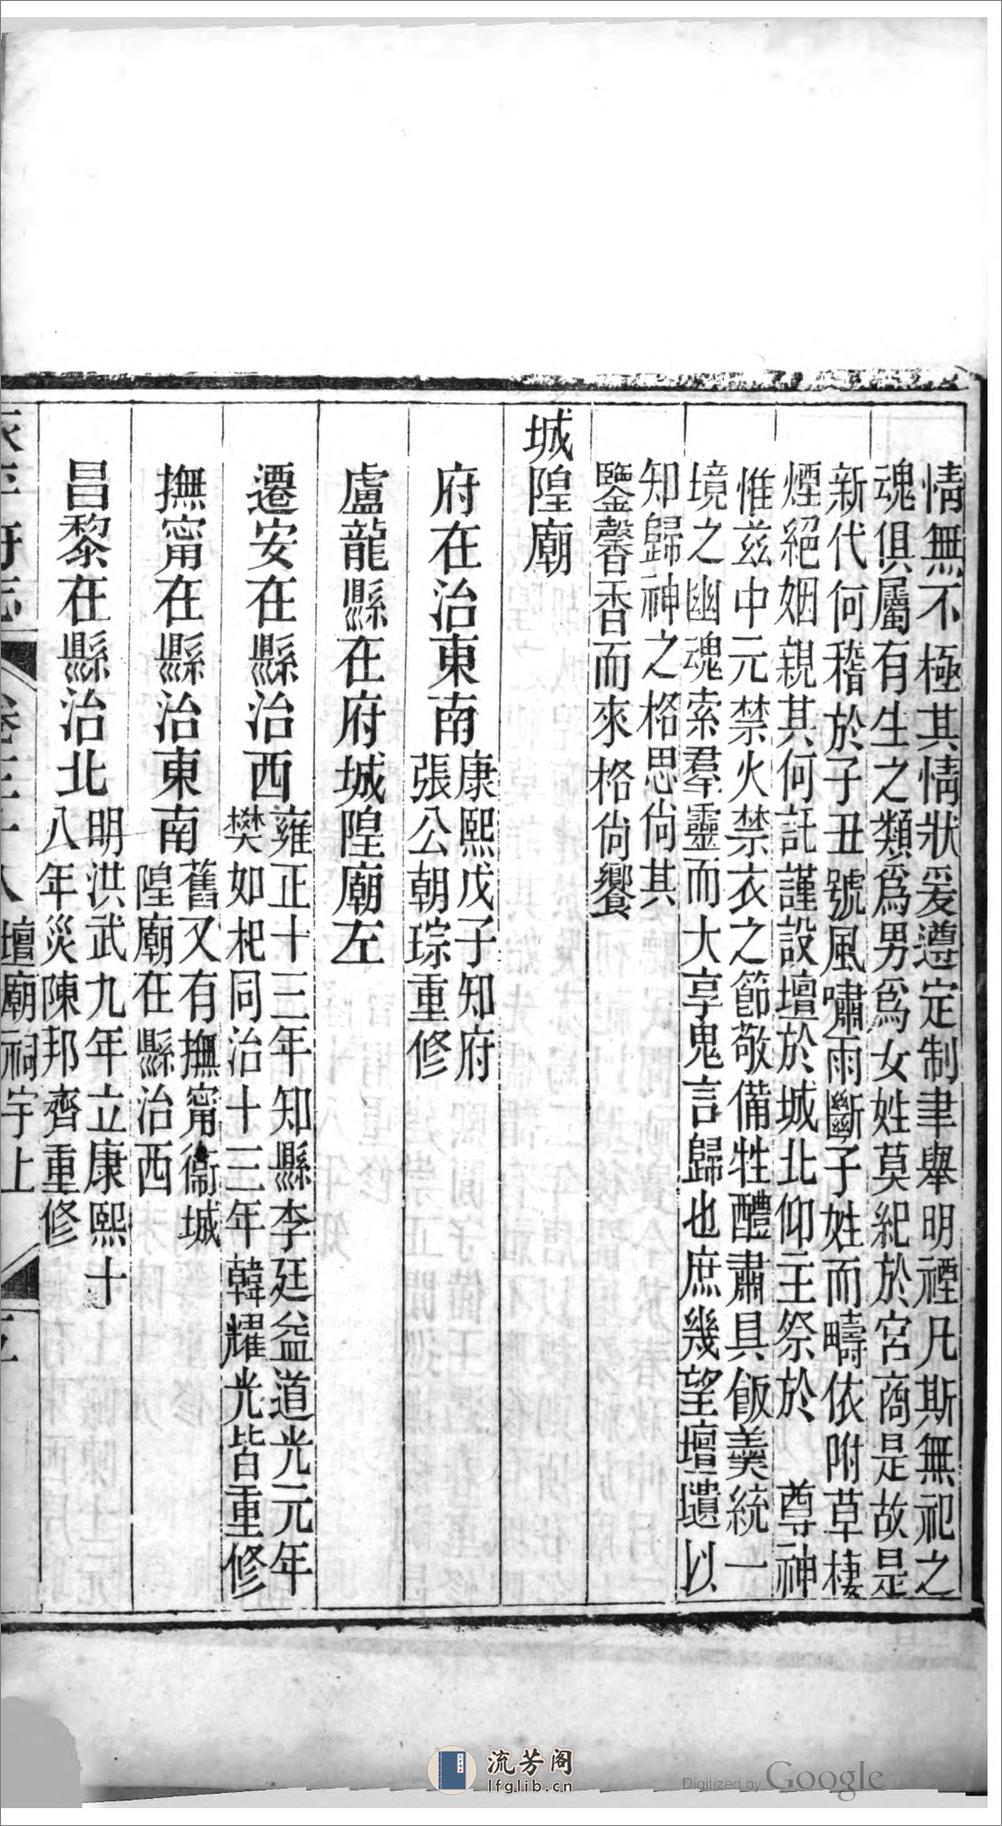 情無不極其情狀爰遵定制聿舉明禋凡斯無祀之
魂俱屬有生之類爲男爲女姓莫紀於宮商是故是
新代何稽於子丑號風嘯雨斷子姓而疇依附草棲
煙絕姻親其何託謹設壇於城北仰主祭於　尊神
惟兹中元禁火禁衣之節敬備牲醴肅具飯羹統一
境之幽魂索羣靈而大享鬼言歸也庶幾望壇壝以
知歸神之格思尙其
鑒馨香而來格尙饗
城隍廟
府在治東南康熙戊子知府
張公朝琮重修
盧龍縣在府城隍廟左
遷安在縣治西雍正十三年知縣李廷益道光元年
樊如杞同治十三年韓耀光皆重修
撫甯在縣治東南舊又有撫甯衞城
隍廟在縣治西
昌黎在縣治北明洪武九年立康熙十
八年災陳邦齊重修
壇廟祠宇上
流芳阁
lfglib.cn
Digitized by Google